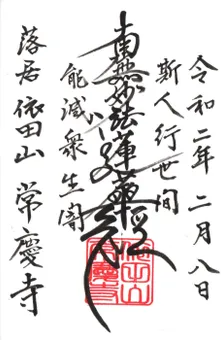 令和二年二月八日
斯人行世間
南無妙法蓮華経
能滅衆生闇
落居 依田山 常慶寺